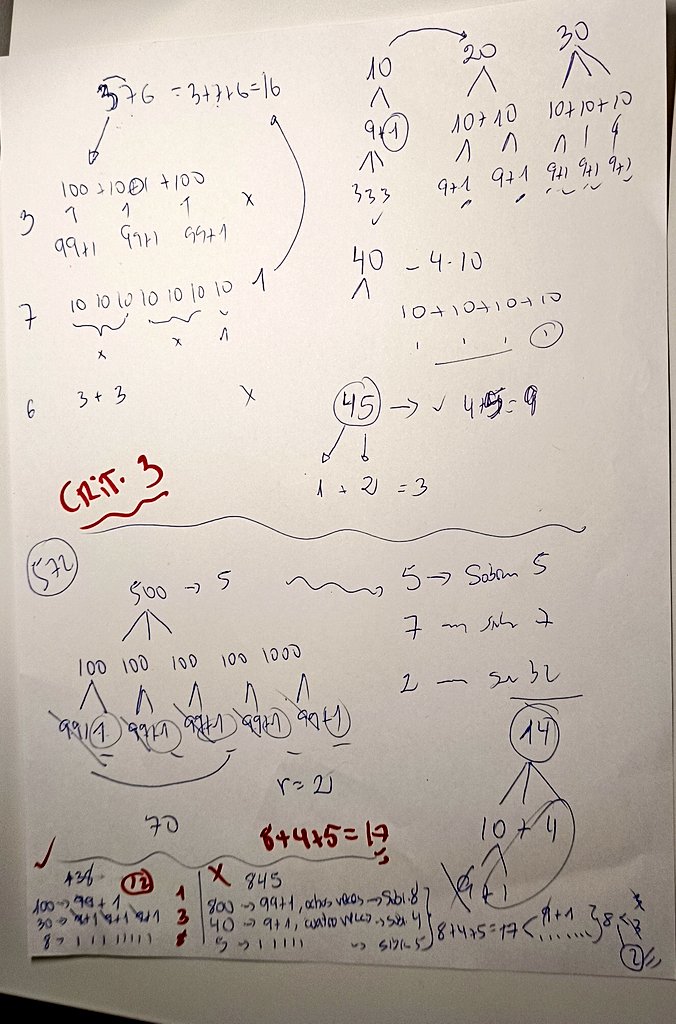 376 = 3+7+6=16
100 + 10 + 1 + 100
3 1 1 1 x
99+1 99+1 99+1
7 10 10 10 10 10 10 10 1
x x 1
6 3 + 3 x
10 20 30
9+1 10+10 10+10+10
333 9+1 9+1 9+1 9+1 9+1
✓
40 - 4·10
10+10+10+10
1 1 1 1
45 → ✓ 4+5=9
1 + 2 = 3
CRIT. 3
572
500 → 5
100 100 100 100 1000
99+1 99+1 99+1 99+1 99+1
r=2
70
5 → Sobran 5
7 — 7
2 —
14
10 + 4
9+1
8+4+5=17
✓
438 12
100 → 99+1 1
30 → 9+1 9+1 9+1 3
8 → 1 1 1 1 1 1 1 1 8
X 845
800 → 99+1, ochos veces → sobr. 8
40 → 9+1, cuatro veces → sobr. 4
5 → 1 1 1 1 1 → sobr. 5
8+4+5=17 < 9+1 } 8 <
2